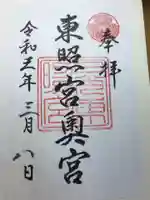 奉拝
東照宮奥宮
令和五年三月八日